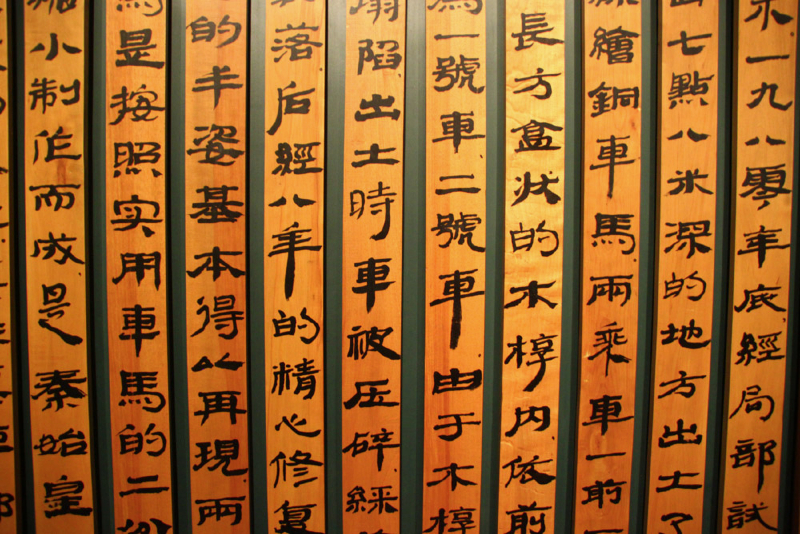 一九八零年底經局部試
七點八米深的地方出土了
繪銅車馬兩乘車一前一
長方盒狀的木椁内依前
為一號車二號車由于木椁
塌陷出土時車被压碎綵
落后經八年的精心修复
的丰姿基本得以再現兩
馬是按照实用車馬的二分
小制作而成是秦始皇